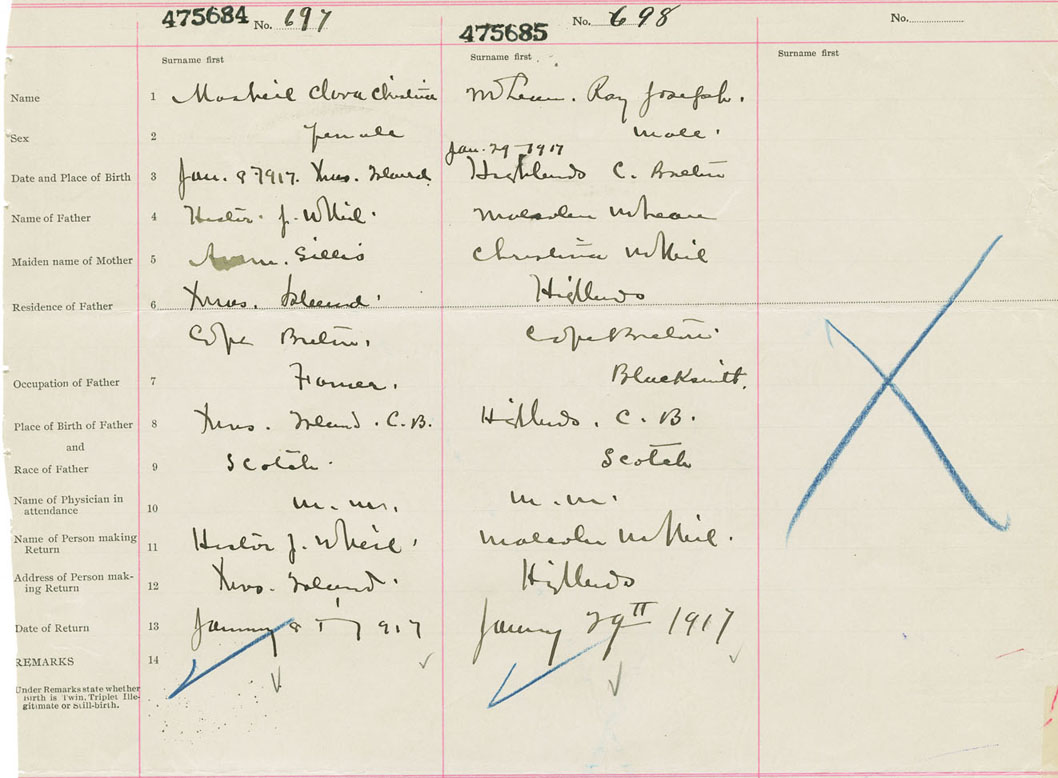 475684 No. 697
475685 No. 698
No.
Surname first
Surname first
Surname first
Name
1
Clara Christina
McLean. Ray Joseph.
Sex
2
female
male.
Date and Place of Birth
3
Jan. 8 1917. Xmas. Island.
Jan. 29 1917
Highlands C. Breton
Name of Father
4
Hector. J. McNeil.
Malcolm McLean
Maiden name of Mother
5
Gillis
Christina McNeil
Residence of Father
6
Xmas. Island.
Highlands
Cape Breton.
Cape Breton.
Occupation of Father
7
Farmer.
Blacksmith.
Place of Birth of Father
8
Xmas. Island. C.B.
Highlands. C. B.
and
Race of Father
9
Scotch.
Scotch
Name of Physician in
attendance
10
m. m.
m. m.
Name of Person making
Return
11
Hector J. McNeil.
Malcolm McNeil.
Address of Person mak-
ing Return
12
Xmas. Island.
Highlands
Date of Return
13
January 8 1917
January 29th 1917
REMARKS
14
Under Remarks state whether
birth is Twin, Triplet Ille-
gitimate or Still-birth.